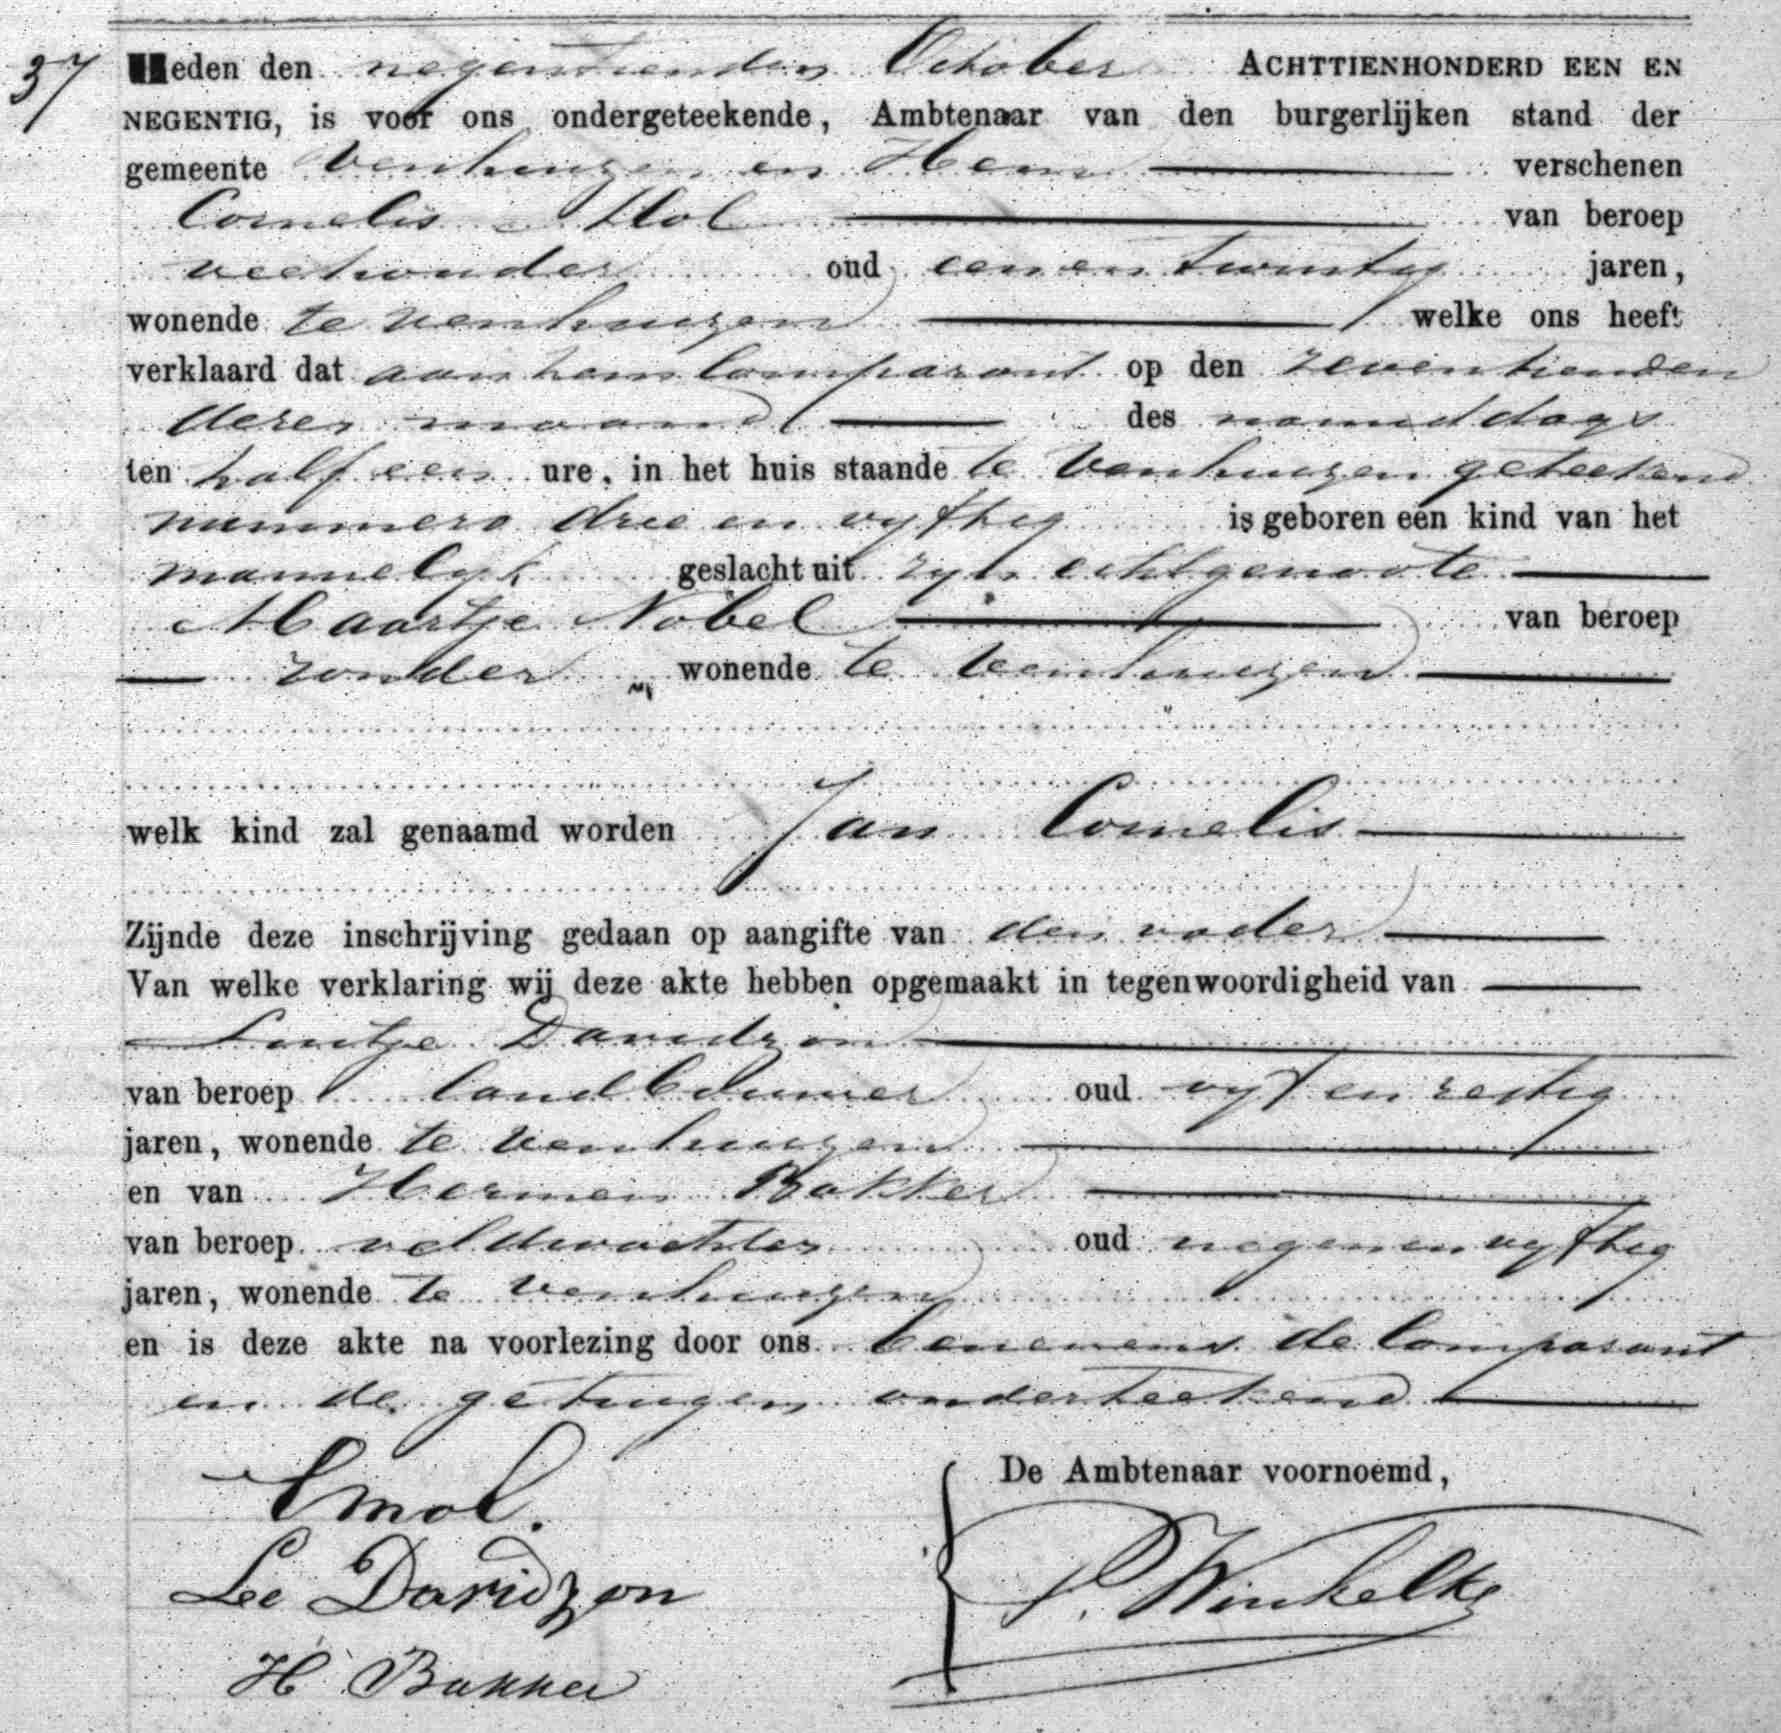 37 Heden den negentienden October ACHTTIENHONDERD EEN EN
NEGENTIG, is voor ons ondergeteekende, Ambtenaar van den burgerlijken stand der
gemeente Venhuizen en Hem verschenen
Cornelis Mol van beroep
veehouder oud eenentwintig jaren,
wonende te Venhuizen welke ons heeft
verklaard dat aan hem Comparant op den zeventienden
dezer maand des namiddags
ten half een ure, in het huis staande te Venhuizen geteekend
nummero drie en vyftig is geboren een kind van het
mannelyk geslacht uit zyn echtgenoote
Maartje Nobel van beroep
zonder wonende te Venhuizen
welk kind zal genaamd worden Jan Cornelis
Zijnde deze inschrijving gedaan op aangifte van den vader
Van welke verklaring wij deze akte hebben opgemaakt in tegenwoordigheid van
Davidzon
van beroep landbouwer oud vyf en zestig
jaren, wonende te Venhuizen
en van Hermen Bakker
van beroep veldwachter oud negenenvyftig
jaren, wonende te Venhuizen
en is deze akte na voorlezing door ons benevens de Comparant
en de getuigen onderteekend
De Ambtenaar voornoemd,
C Mol.
Davidzon
P. Winkel
H Bakker